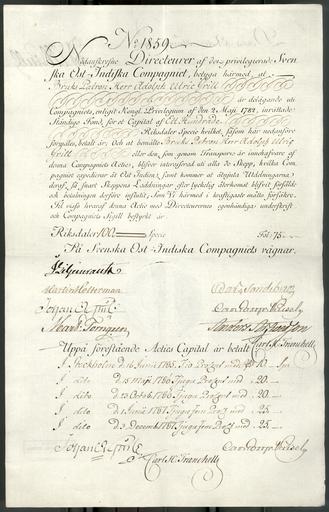 No 1859
Nedanskrefne Directeurer af den privilegierade Sven
ska Ost-Indiska Compagniet, betyga härmed, at
Bruks Patron Herr Adolph Ulric Grill
är delägande uti
Compagniets, enligt Kongl. Privilegium af den 2 Maji 1782, inrättade
Ständige Fond, för et Capital af Ett Hundrade
Riksdaler Specie hvilket, såsom här nedanföre
förmäles, betalt är: Och at bemälte Bruks Patron Herr Adolph Ulric
Grill eller den, som genom Transport är innehafvare af
denna Compagniets Actie, blifver interesserad uti alla de Skepp, hvilka Com
pagniet expedierar åt Ost Indien, samt kommer at åtnjuta Utdelningarne
deraf, så snart Skeppens Laddningar efter lyckelig återkomst blifvit försålde
och betalningen derföre influtit; Som Vi härmed i kraftigaste måtto försäkre.
Til visso hvaraf denna Actie med Directeurernes egenhändiga underskrift
och Compagniets Sigill bestyrkt är.
Riksdaler 100 Specie
På Svenska Ost-Indiska Compagniets vägnar.
Martin Holterman
Johan Grill
Carl H. Franchell
Uppå förestående Acties Capital är betalt
I Stockholm d. 16 Junii 1785. Tio Procent med Rd 10 Sp
I dito d. 15 Maji 1786 Tjugu Procent med 20
I dito d. 20 Octob 1786 Tjugu Procent med 20
I dito d. 1 Junii 1787 Tjugu fem Proc med 25
I dito d. 3 Decemb 1787 Tjugu fem Proc med 25
Johan Grill
Carl H. Franchell